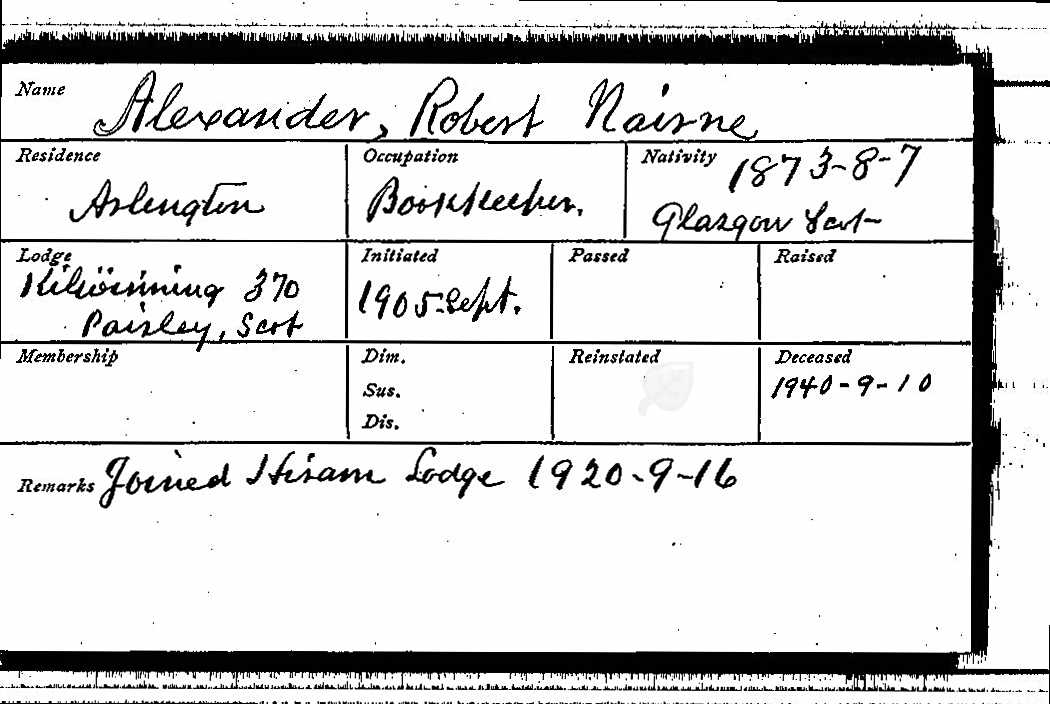 Name Alexander, Robert Nairne
Residence Occupation Nativity 1873-8-7
Arlington Bookkeeper. Glasgow Scot
Lodge Initiated Passed Raised
Kilwinning 370 1905-Sept.
Paisley, Scot
Membership Dim. Reinstated Deceased
Sus. 1940-9-10
Dis.
Remarks Joined Hiram Lodge 1920-9-16